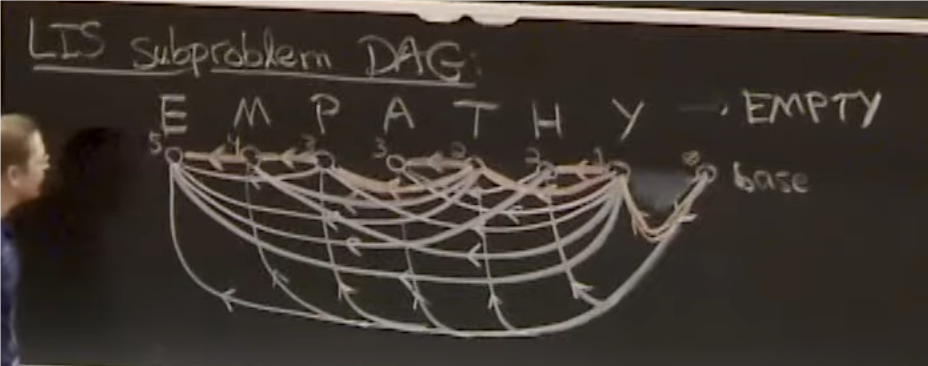 LIS subproblem DAG:
E M P A T H Y → EMPTY
5 4 3 3 2 2 1 base